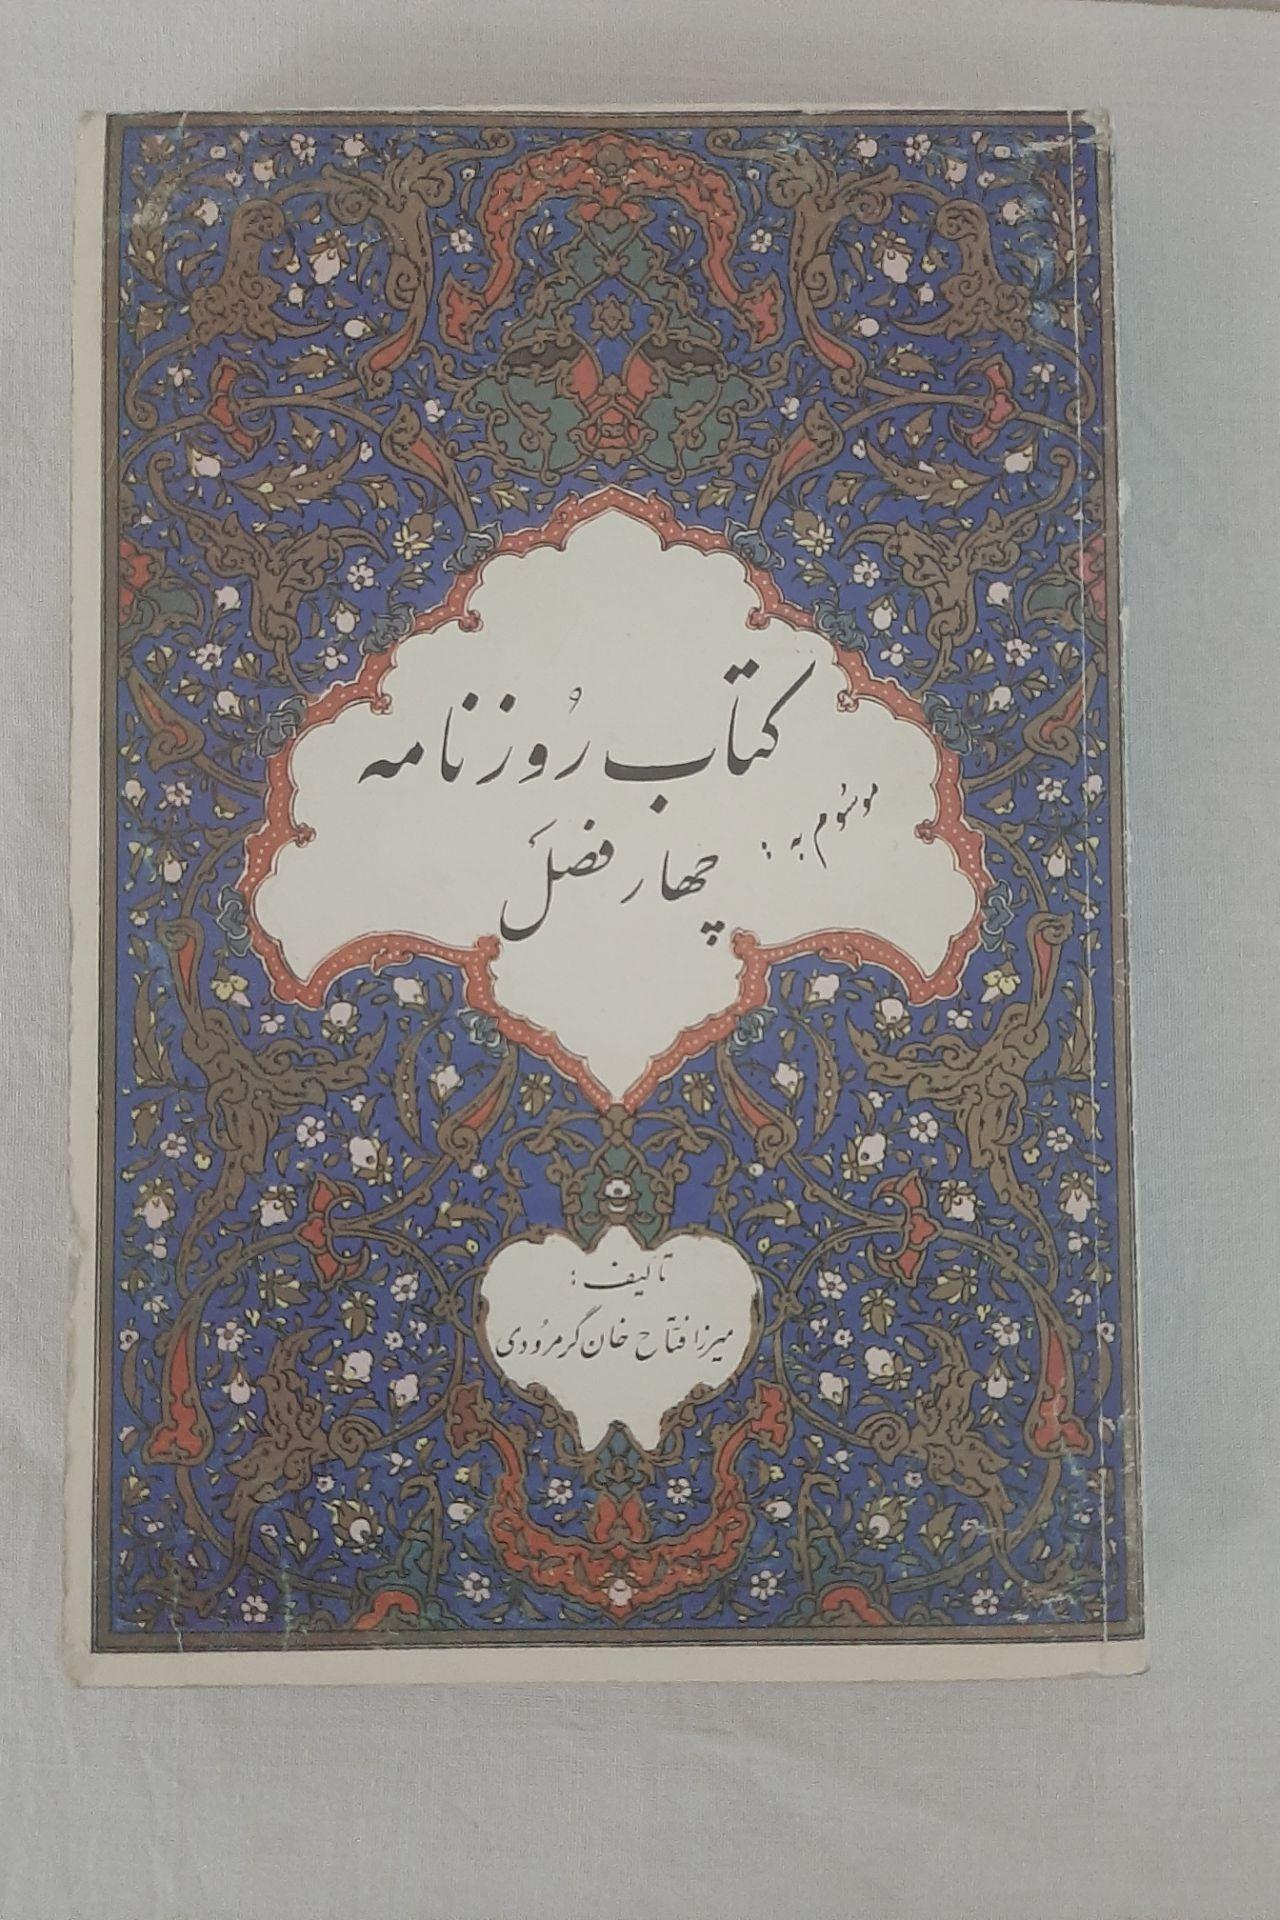 کتاب رُوزنامه
موسُوم به :
چهار فصَل
تألیف :
میرزا فتّاح خان گرمرُودی